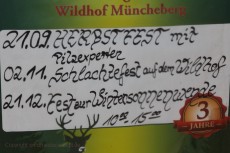 Wildhof Müncheberg
21.09. HERBSTFEST mit
Pilzexperten
02.11. Schlachtefest auf dem Wildhof
21.12. Fest zur Wintersonnenwende
3
JAHRE